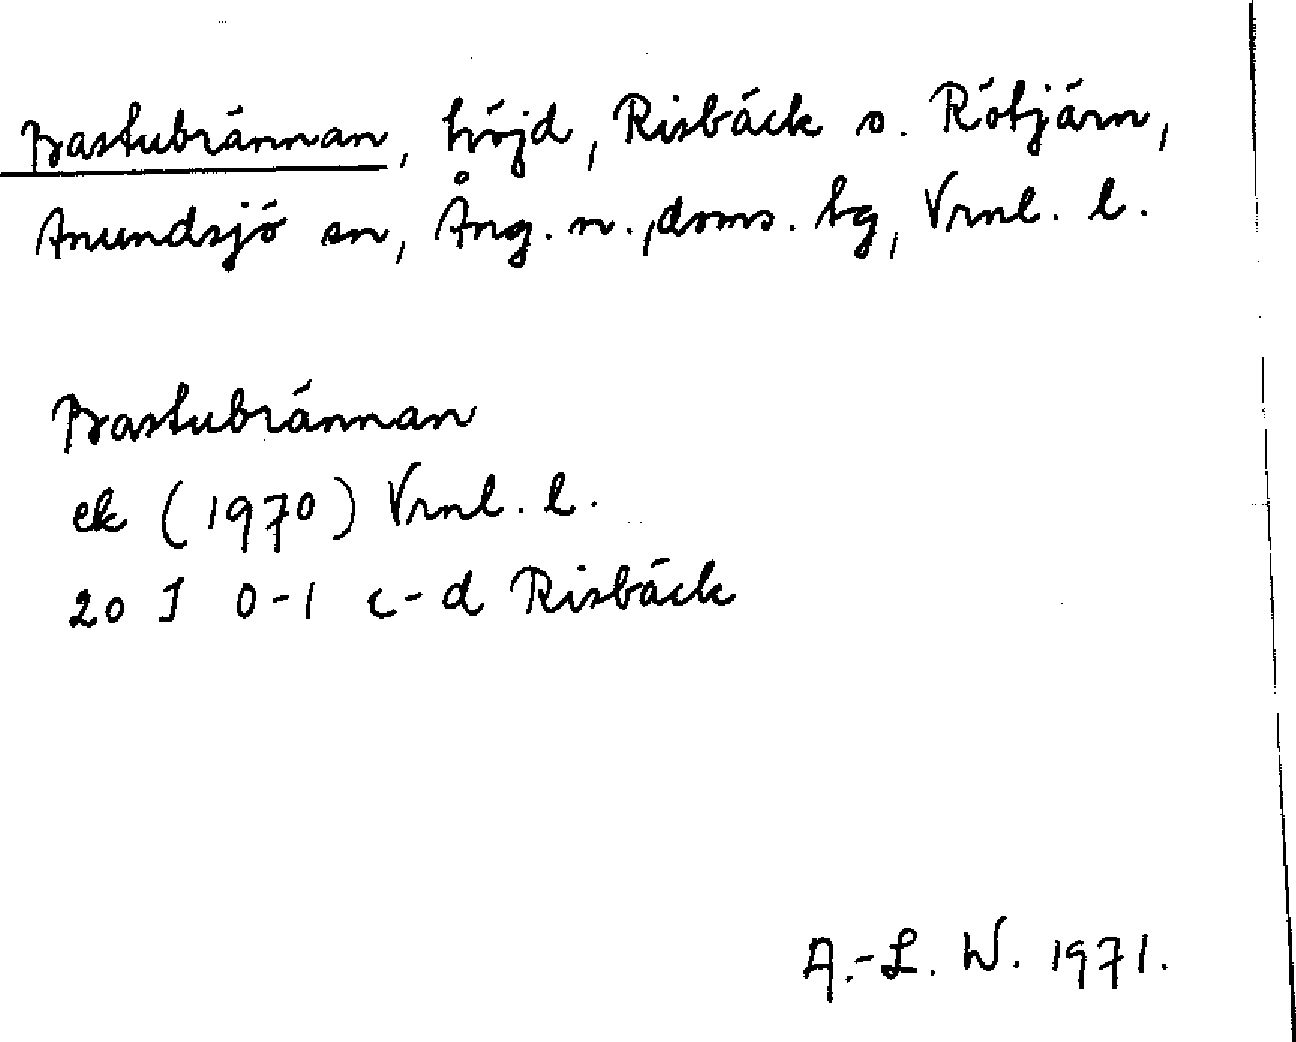 Bastubrännan, höjd, Risbäck o. Rötjärn,
Anundsjö sn, Ång. n., doms. bg, Vrnl. l.
Bastubrännan
ek (1970) Vrnl. l.
20 J 0-1 c-d Risbäck
A.-L. W. 1971.